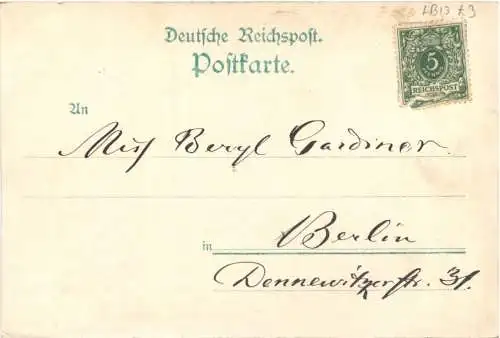 Deutsche Reichspost.
Postkarte.
5
REICHSPOST
An
Miss Beryl Gardiner.
in Berlin
Dennewitzerstr. 31.